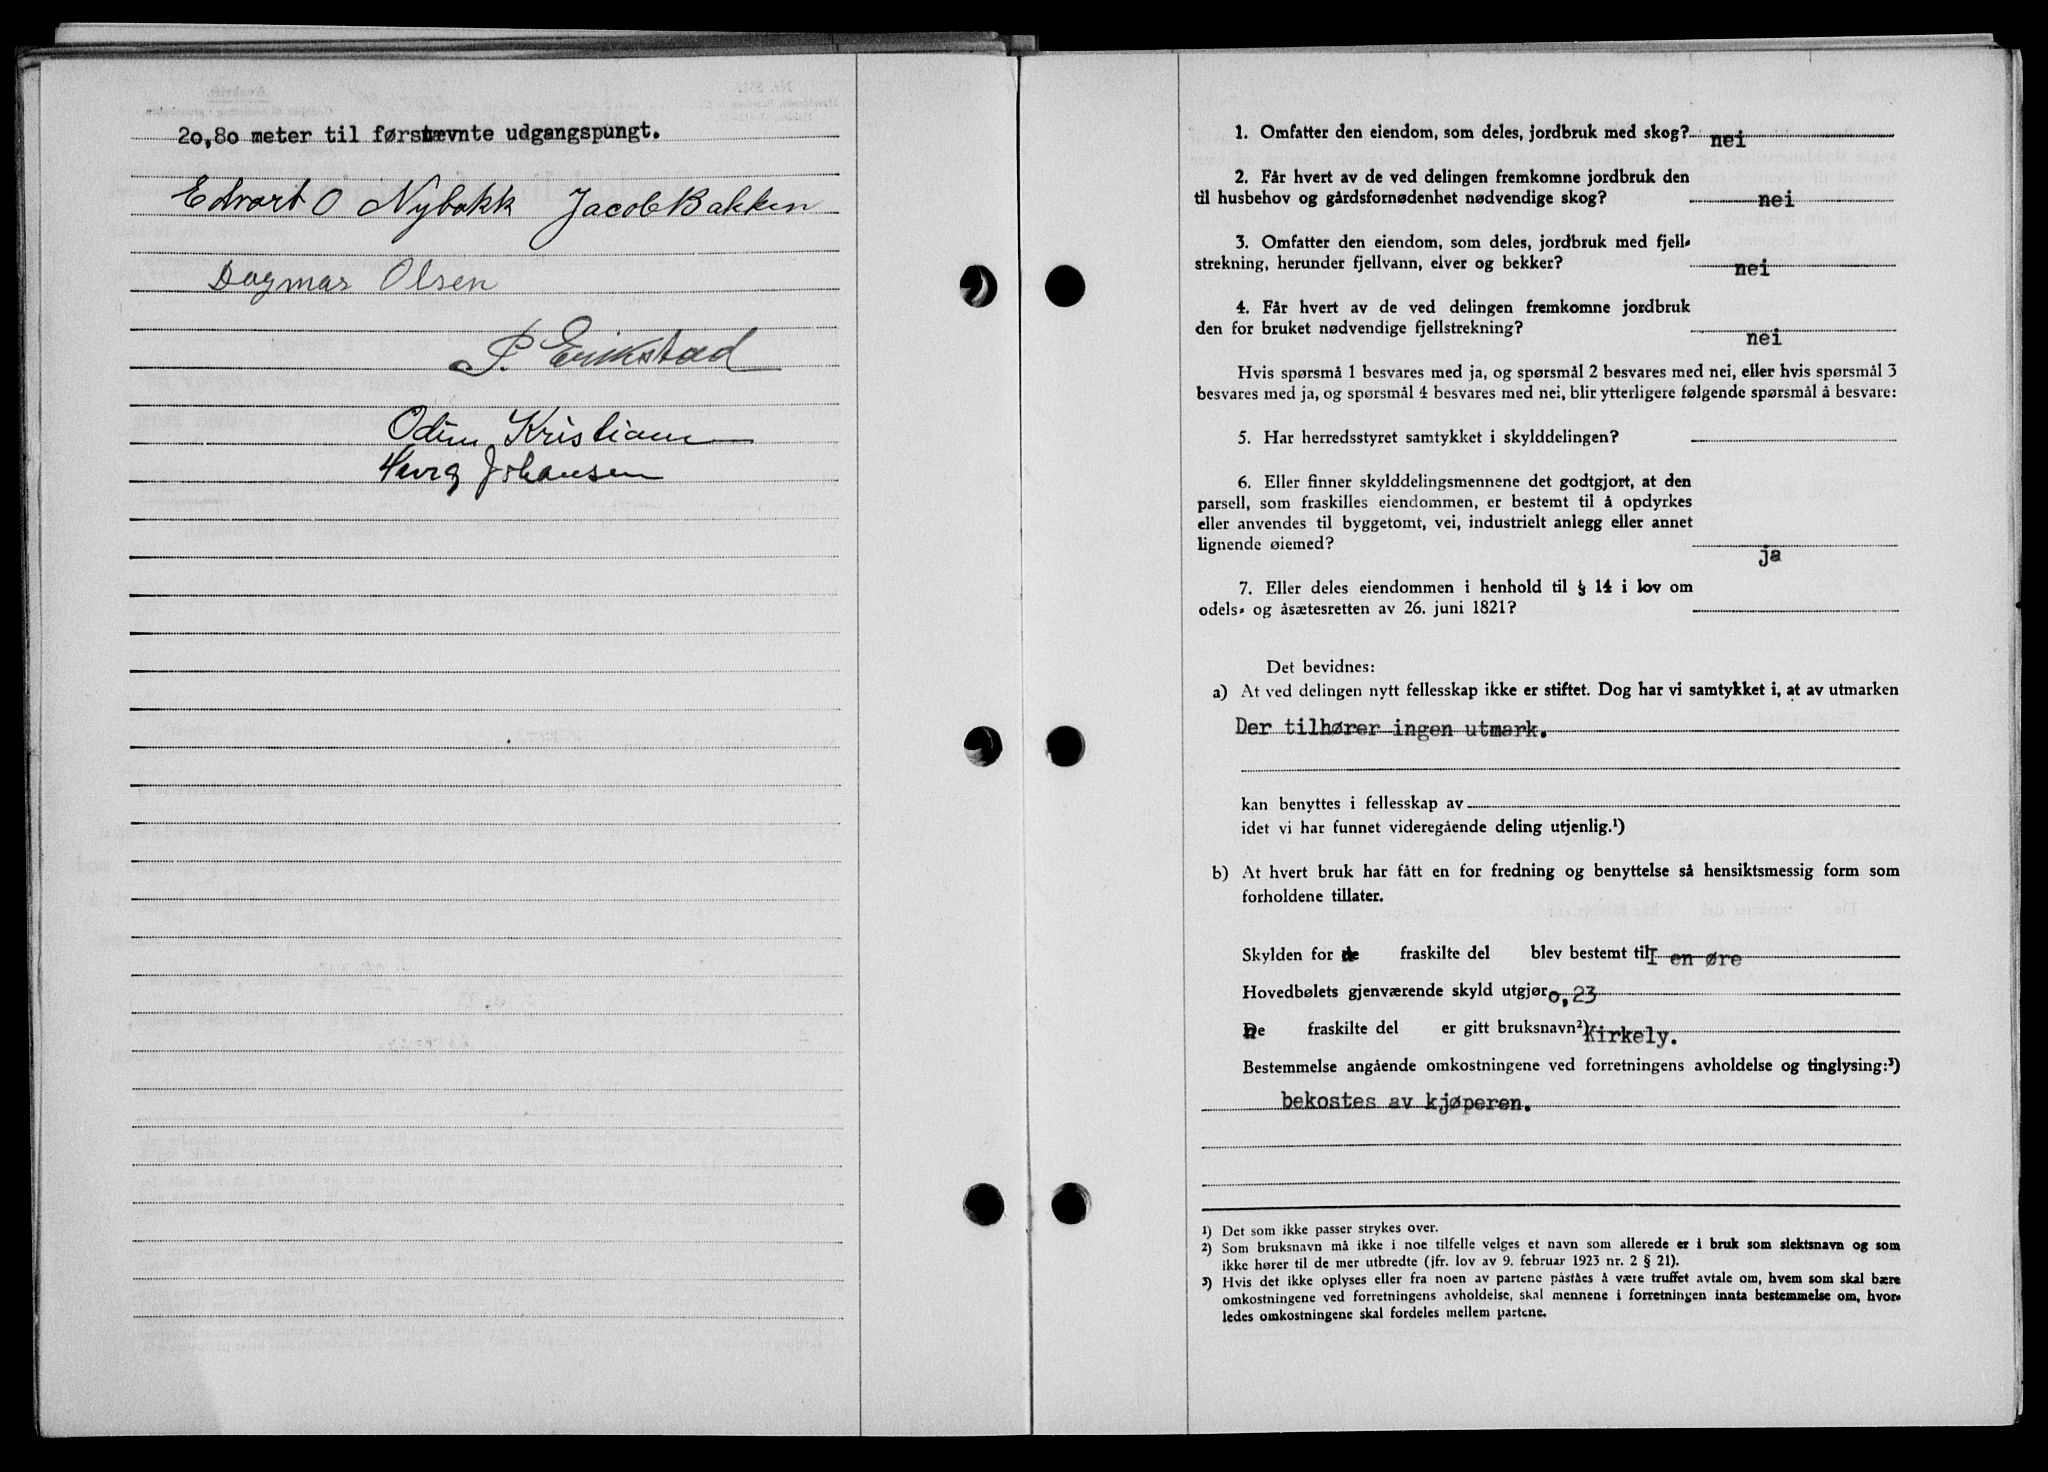 20,80 meter til førstnevnte udgangspungt.
Edvart O Nybakk Jacob Bakken
Dagmar Olsen
P. Erikstad
Odin Kristian
Johansen
1. Omfatter den eiendom, som deles, jordbruk med skog? nei
2. Får hvert av de ved delingen fremkomne jordbruk den
til husbehov og gårdsfornødenhet nødvendige skog? nei
3. Omfatter den eiendom, som deles, jordbruk med fjell-
strekning, herunder fjellvann, elver og bekker? nei
4. Får hvert av de ved delingen fremkomne jordbruk
den for bruket nødvendige fjellstrekning? nei
Hvis spørsmå 1 besvares med ja, og spørsmål 2 besvares med nei, eller hvis spørsmål 3
besvares med ja, og spørsmål 4 besvares med nei, blir ytterligere følgende spørsmål å besvare:
5. Har herredsstyret samtykket i skylddelingen?
6. Eller finner skylddelingsmennene det godtgjort, at den
parsell, som fraskilles eiendommen, er bestemt til å opdyrkes
eller anvendes til byggetomt, vei, industrielt anlegg eller annet
lignende øiemed? ja
7. Eller deles eiendommen i henhold til § 14 i lov om
odels- og åsætesretten av 26. juni 1821?
Det bevidnes:
a) At ved delingen nytt fellesskap ikke er stiftet. Dog har vi samtykket i, at av utmarken
Der tilhører ingen utmark.
kan benyttes i fellesskap av
idet vi har funnet videregående deling utjenlig.¹)
b) At hvert bruk har fått en for fredning og benyttelse så hensiktsmessig form som
forholdene tillater.
Skylden for de fraskilte del blev bestemt til I en øre
Hovedbølets gjenværende skyld utgjør 0,23
De fraskilte del er gitt bruksnavn²) Kirkely.
Bestemmelse angående omkostningene ved forretningens avholdelse og tinglysing:³)
bekostes av kjøperen.
¹) Det som ikke passer strykes over.
²) Som bruksnavn må ikke i noe tilfelle velges et navn som allerede er i bruk som slektsnavn og som
ikke hører til de mer utbredte (jfr. lov av 9. februar 1923 nr. 2 § 21).
³) Hvis det ikke oplyses eller fra noen av partene påståes å være truffet avtale om, hvem som skal bære
omkostningene ved forretningens avholdelse, skal mennene i forretningen innta bestemmelse om, hvor-
ledes omkostningene skal fordeles mellem partene.